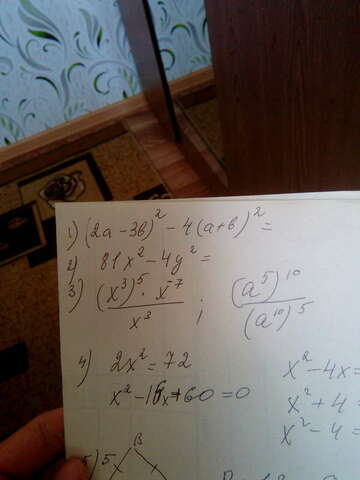 1) (2a-3b)² - 4(a+b)² =
2) 81x² - 4y² =
3) (x³)⁵ · x⁻⁷ / x³ ; (a⁵)¹⁰ / (a¹⁰)⁵
4) 2x² = 72 x² - 4x =
x² - 16x + 60 = 0 x² + 4 =
x² - 4 =
5) 5 B